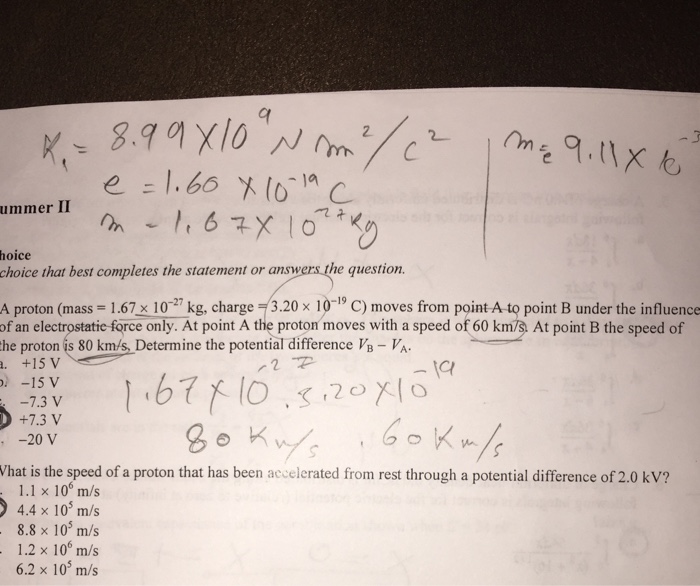 K₁ = 8.99 X10⁹ N m²/c² | me 9.11 X 10⁻³
e = 1.60 X 10⁻¹⁹ C
ummer II
m - 1.67X 10⁻²⁷ kg
hoice
choice that best completes the statement or answers the question.
A proton (mass = 1.67 × 10⁻²⁷ kg, charge = 3.20 × 10⁻¹⁹ C) moves from point A to point B under the influence
of an electrostatic force only. At point A the proton moves with a speed of 60 km/s. At point B the speed of
he proton is 80 km/s. Determine the potential difference V_B − V_A.
a. +15 V
−15 V
−7.3 V
+7.3 V
−20 V
1.67 X 10⁻²⁷ . 3.20 X10⁻¹⁹
80 Km/s . 60 Km/s
What is the speed of a proton that has been accelerated from rest through a potential difference of 2.0 kV?
1.1 × 10⁶ m/s
4.4 × 10⁵ m/s
8.8 × 10⁵ m/s
1.2 × 10⁶ m/s
6.2 × 10⁵ m/s